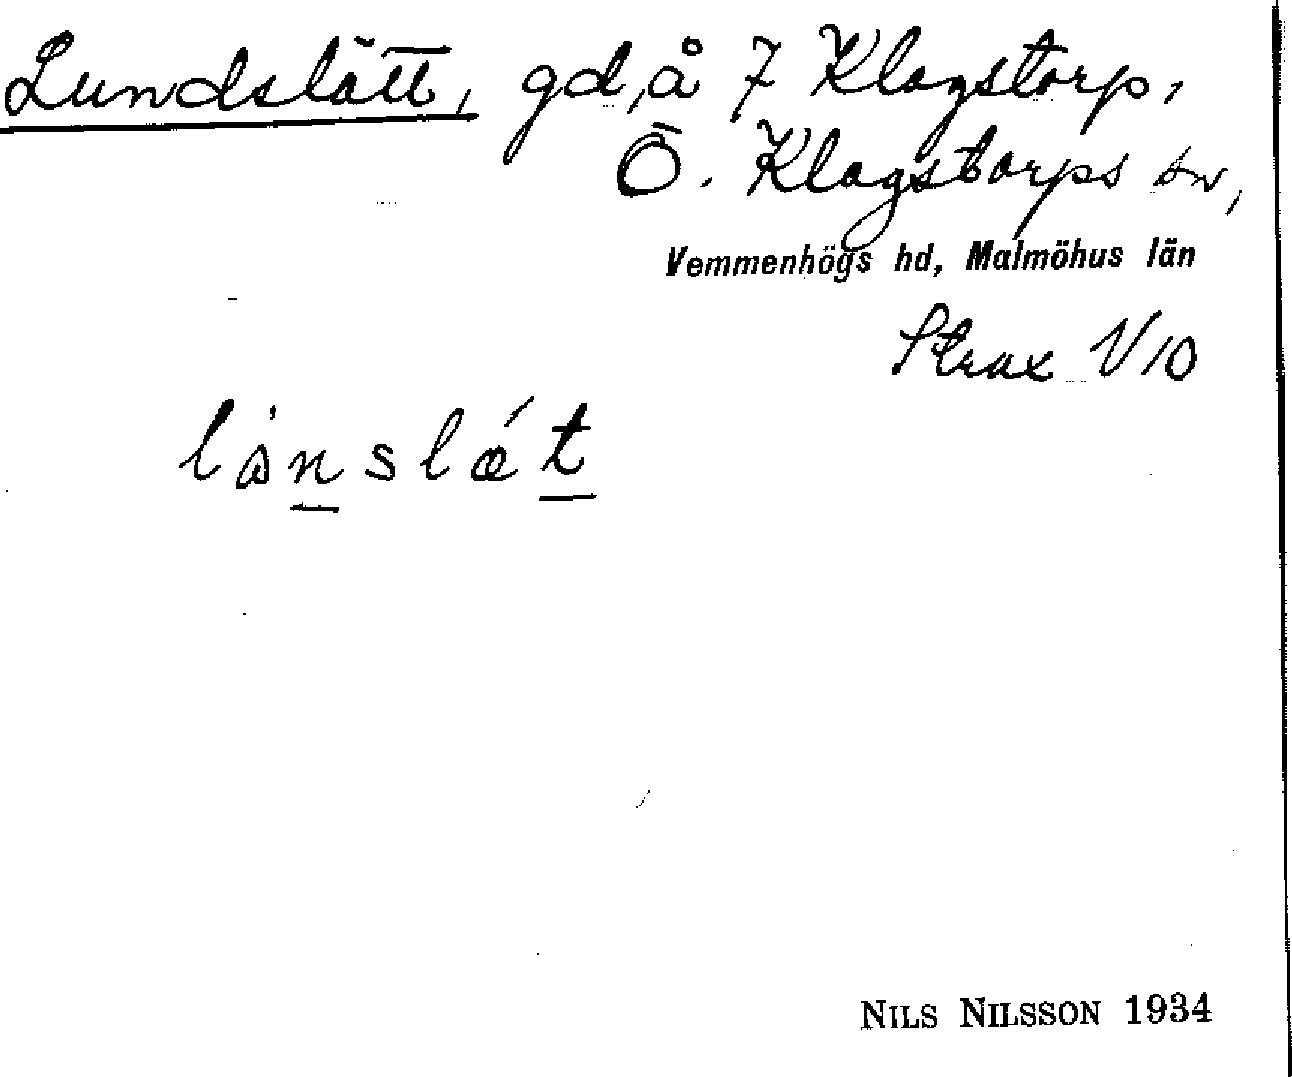 Lundslätt, gd, å 7 Klagstorp,
Ö. Klagstorps sn,
Vemmenhögs hd, Malmöhus län
Strax V/10
lånslǽt
NILS NILSSON 1934